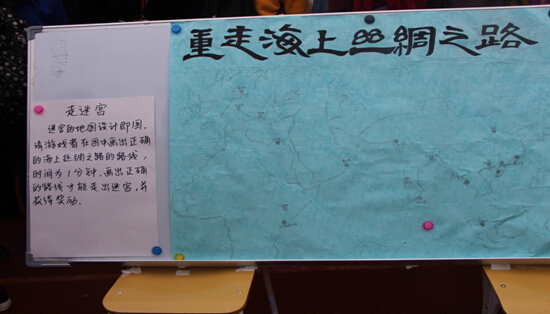 重走海上丝绸之路
走迷宫
迷宫的地图设计即图。
请游戏者在图中画出正确
的海上丝绸之路的路线，
时间为1分钟，画出正确
的路线才能走出迷宫，并
获得奖励。